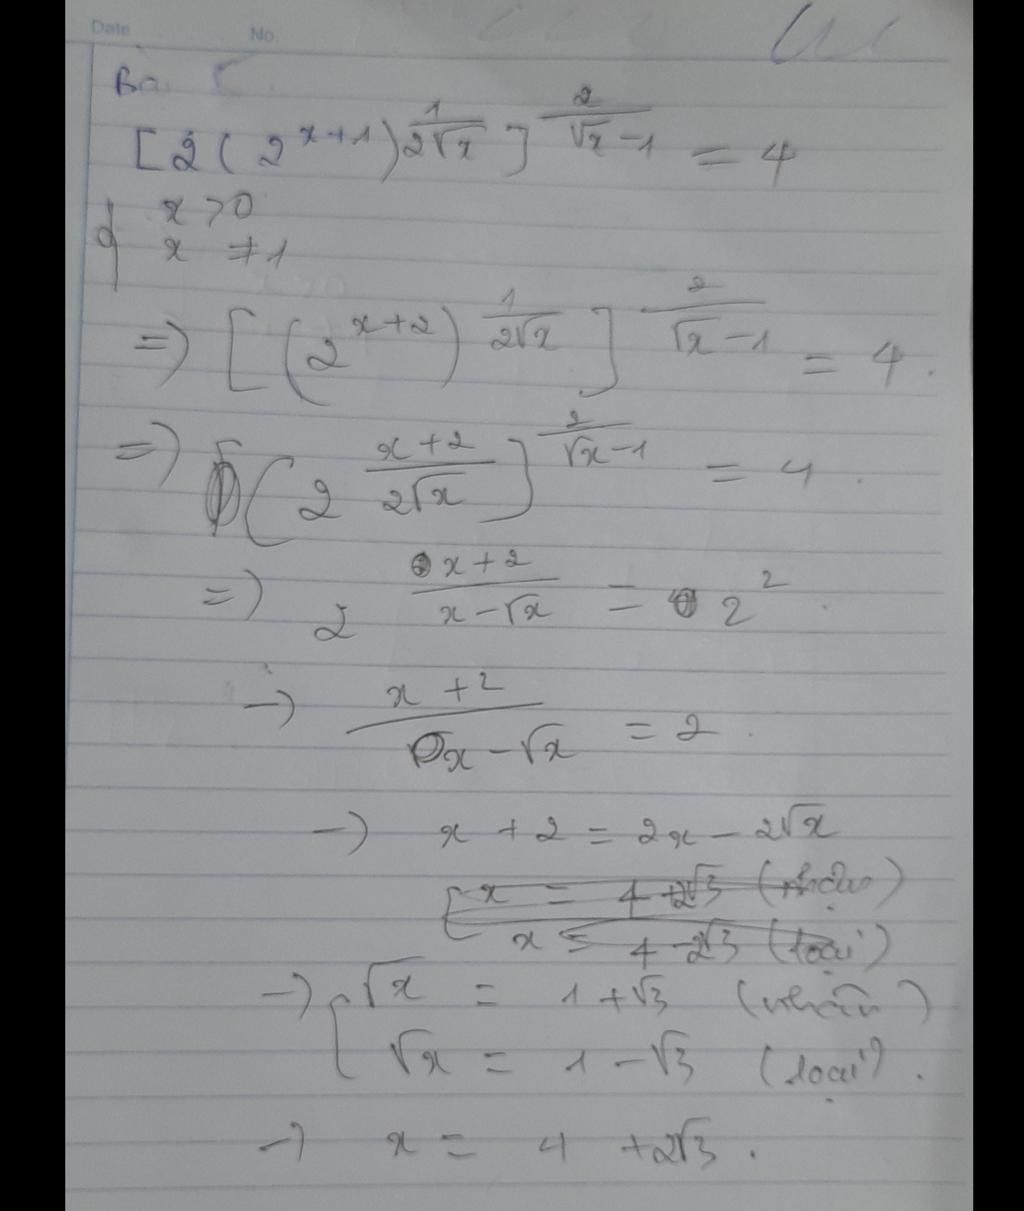 Date No
Bài 5.
[2(2^{x+1})^{\frac{1}{2\sqrt{x}}}]^{\frac{2}{\sqrt{x}-1}} = 4
x > 0
x ≠ 1
=> [(2^{x+2})^{\frac{1}{2\sqrt{x}}}]^{\frac{2}{\sqrt{x}-1}} = 4.
=> [(2^{\frac{x+2}{2\sqrt{x}}}]^{\frac{2}{\sqrt{x}-1}} = 4.
=> 2^{\frac{x+2}{x-\sqrt{x}}} = 2^2.
-> \frac{x+2}{x-\sqrt{x}} = 2.
-> x + 2 = 2x - 2√x
x = 4 + 2√3 (nhận)
x = 4 - 2√3 (loại)
-> √x = 1 + √3 (nhận)
√x = 1 - √3 (loại).
-> x = 4 + 2√3.